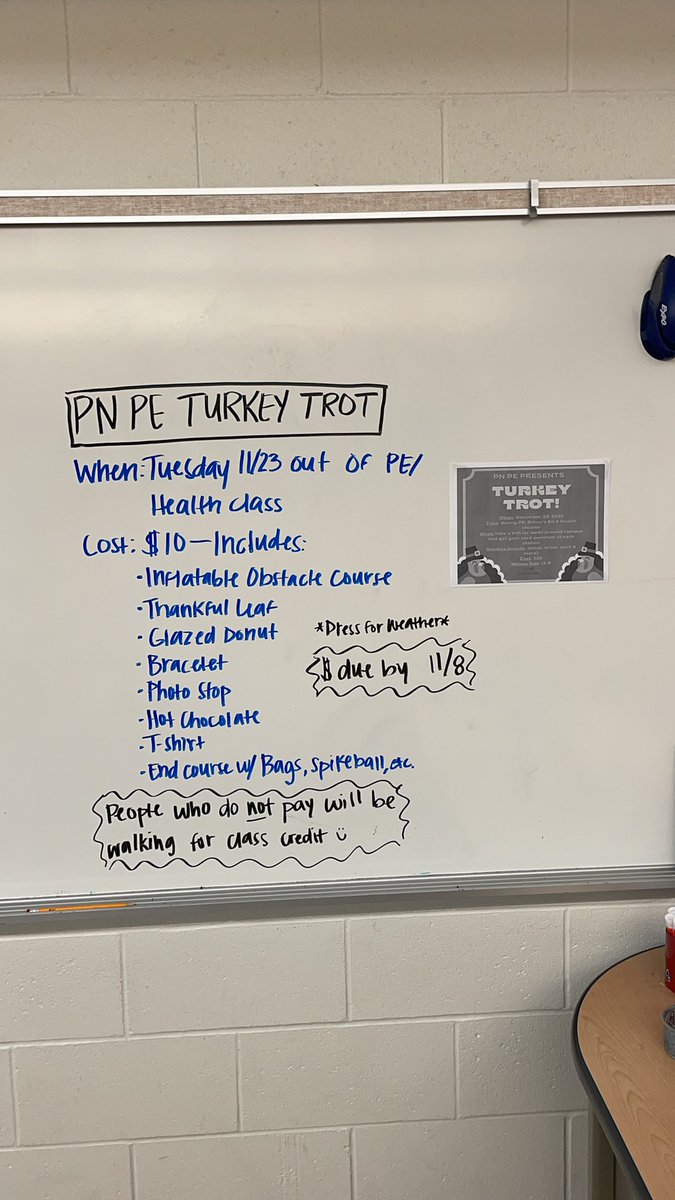 PN PE TURKEY TROT
When: Tuesday 11/23 out of PE/
Health class
Cost: $10 — Includes:
· Inflatable Obstacle Course
· Thankful Leaf
· Glazed Donut
· Bracelet
· Photo Stop
· Hot Chocolate
· T-shirt
· End course w/ Bags, Spikeball, etc.
*Dress for Weather*
$ due by 11/8
People who do not pay will be
walking for class credit
PN PE PRESENTS...
TURKEY
TROT!
When: November 23, 2021
Time: during PE, Driver's Ed & Health
classes
What: take a trot (or walk) around campus
and get your card punched at each
station
Cost: $10
Money Due: 11/8
EXPO